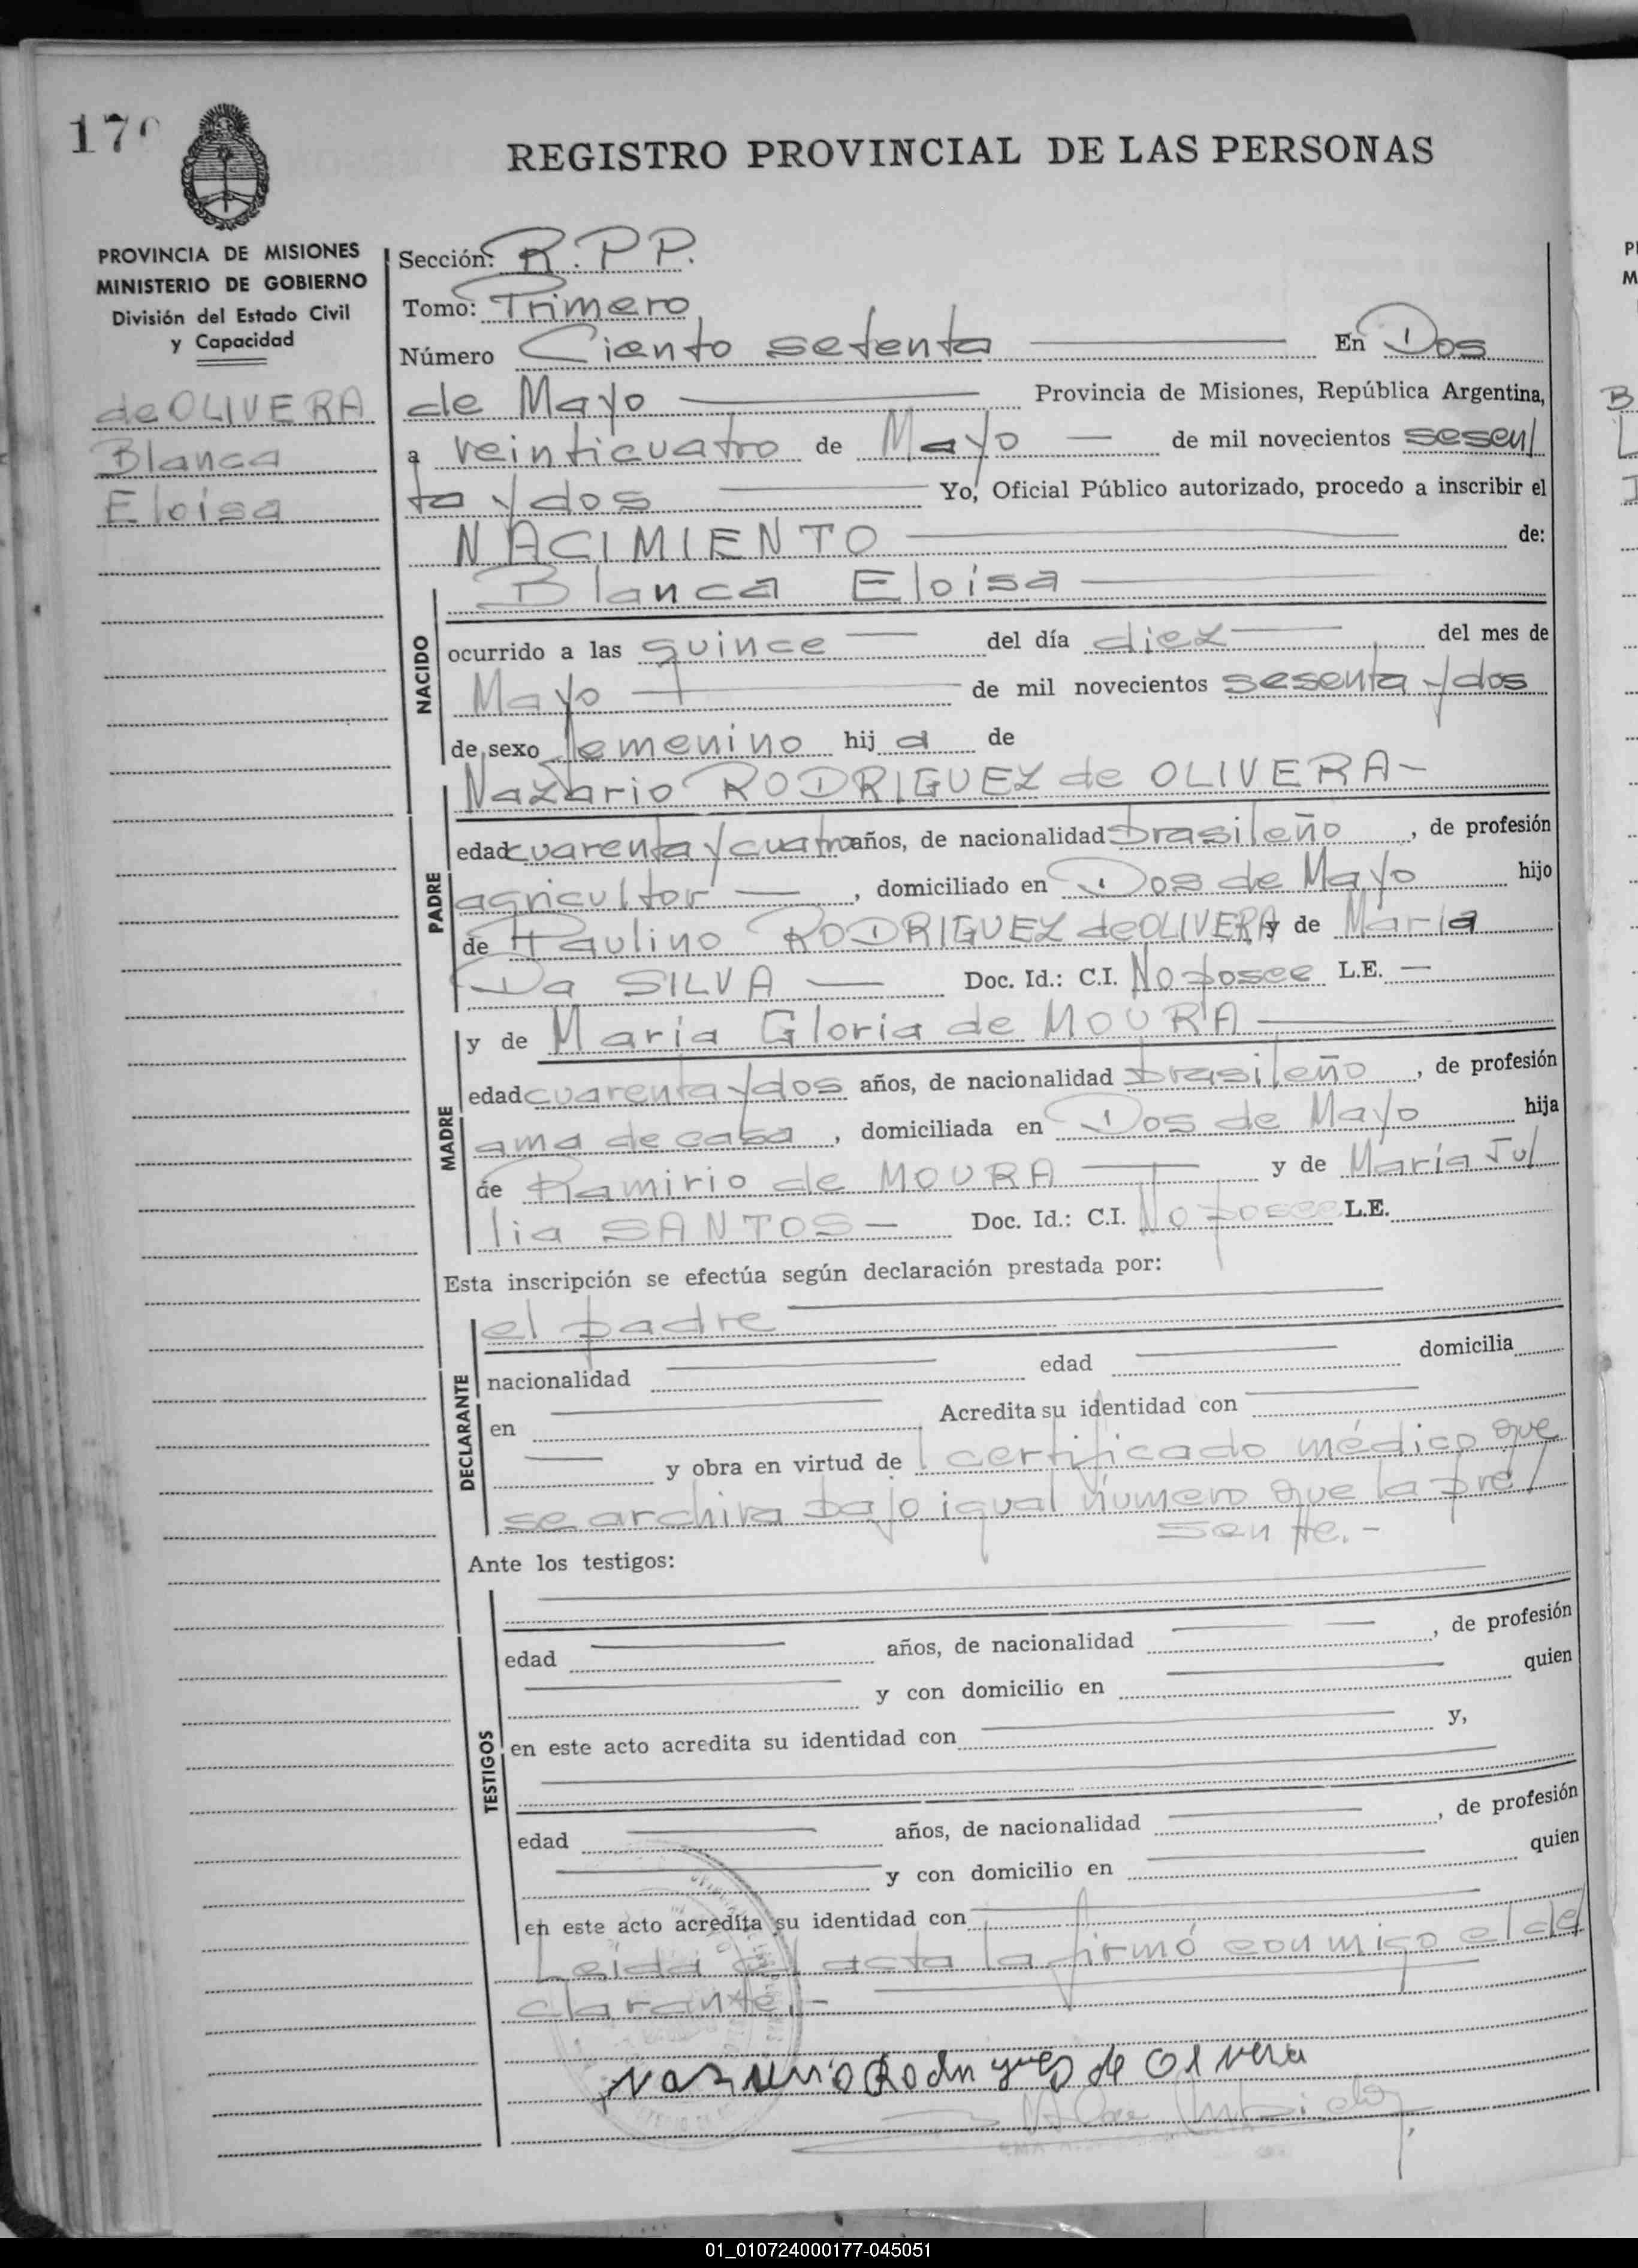 170
REGISTRO PROVINCIAL DE LAS PERSONAS
PROVINCIA DE MISIONES
MINISTERIO DE GOBIERNO
División del Estado Civil
y Capacidad
de OLIVERA
Blanca
Eloisa
Sección: R.P.P.
Tomo: Primero
Número Ciento setenta En Dos
de Mayo Provincia de Misiones, República Argentina,
a veinticuatro de Mayo de mil novecientos sesen/
ta y dos Yo, Oficial Público autorizado, procedo a inscribir el
NACIMIENTO de:
Blanca Eloisa
NACIDO
ocurrido a las quince del día diez del mes de
Mayo de mil novecientos sesenta y dos
de sexo femenino hija de
Nazario RODRIGUEZ de OLIVERA-
PADRE
edad cuarenta y cuatro años, de nacionalidad brasileño, de profesión
agricultor, domiciliado en Dos de Mayo hijo
de Paulino RODRIGUEZ de OLIVERA y de María
Da SILVA Doc. Id.: C.I. No posee L.E. —
y de María Gloria de MOURA
MADRE
edad cuarenta y dos años, de nacionalidad brasileño, de profesión
ama de casa, domiciliada en Dos de Mayo hija
de Ramirio de MOURA y de María Ju/
lia SANTOS — Doc. Id.: C.I. No posee L.E.
Esta inscripción se efectúa según declaración prestada por:
el padre
DECLARANTE
nacionalidad edad domicilia
en Acredita su identidad con
y obra en virtud de certificado médico que
se archiva bajo igual número que la pre/
sente.-
Ante los testigos:
TESTIGOS
edad años, de nacionalidad , de profesión
y con domicilio en quien
en este acto acredita su identidad con y,
edad años, de nacionalidad , de profesión
y con domicilio en quien
en este acto acredita su identidad con
Leída el acta la firmó conmigo el de/
clarante.-
Nazario Rodrigues de Olivera
01_010724000177-045051